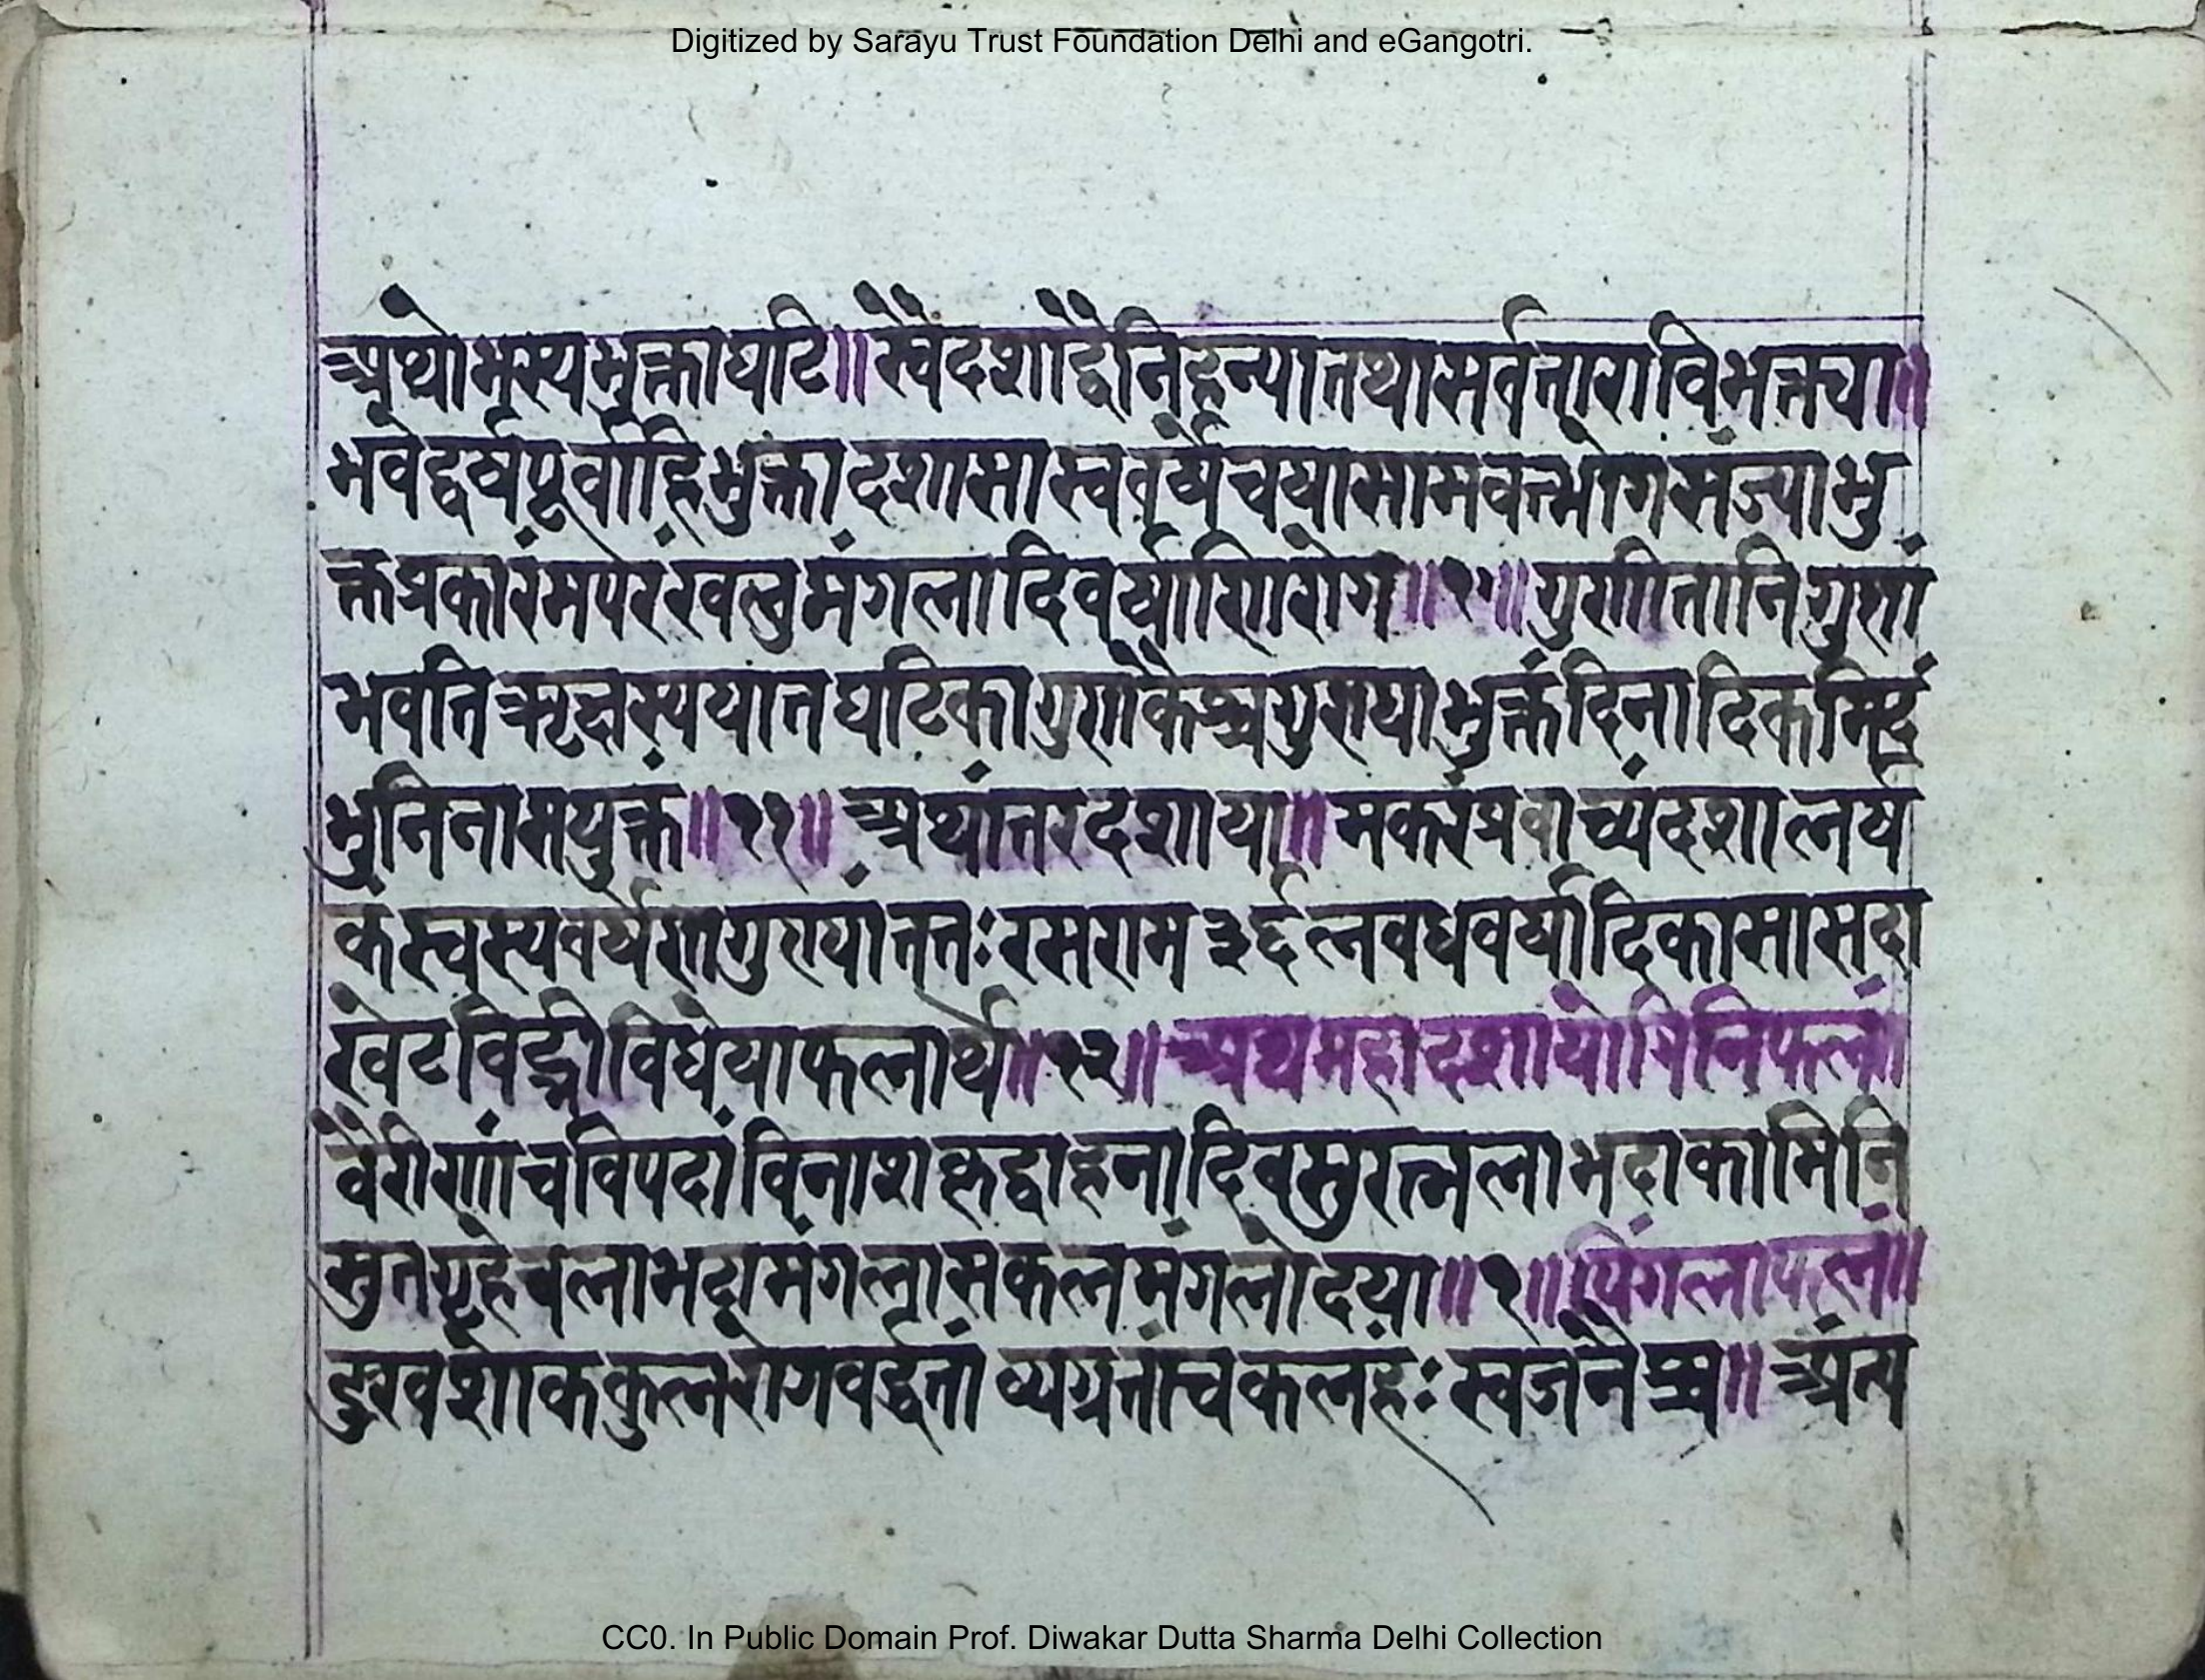 Digitized by Sarayu Trust Foundation Delhi and eGangotri.
अथो भस्य भुक्ता घटि॥ स्वैदशाद्वैनिहन्यात तथा सर्वतारा विभक्तचा॥
भवेद्वर्षपूर्वा हि भुक्ता दशा सा स्ववर्षे च या सा मवेत्भोगसंज्या भु
क्तप्रकारंमपरंरवलु मंगलादिवर्षाणि रोग॥११॥ गुणीतानि गुणां
भवति ऋक्षस्य यात घटिका गुणकैश्च गुण्या भुक्तं दिनादिकमिदं
भुनिना सयुक्तं॥११॥ अथांतरदशाया॥ मकरंप्रवाच्यं दशा त्नर्ष
कं स्वस्य वर्षेण गुण्यां तत्तः रसराम ३६ र्लवध वर्षादिका सा सदा
रंवेटविद्भी विधेया फलार्थं॥१२॥ अथ महादशा योगिनि फलं॥
वैरीणां च विपदां विनाशकृद्वाहनादिवसुरत्नलाभदा कामिनि
सुतगृहे बलाभदा मंगला सकलमंगलोदया॥१॥ पिंगला फलं॥
दुरवशोककुलरोगवर्द्धतां व्यग्रतां च कलहः स्वजनैश्च॥ अंत्य
CC0. In Public Domain Prof. Diwakar Dutta Sharma Delhi Collection